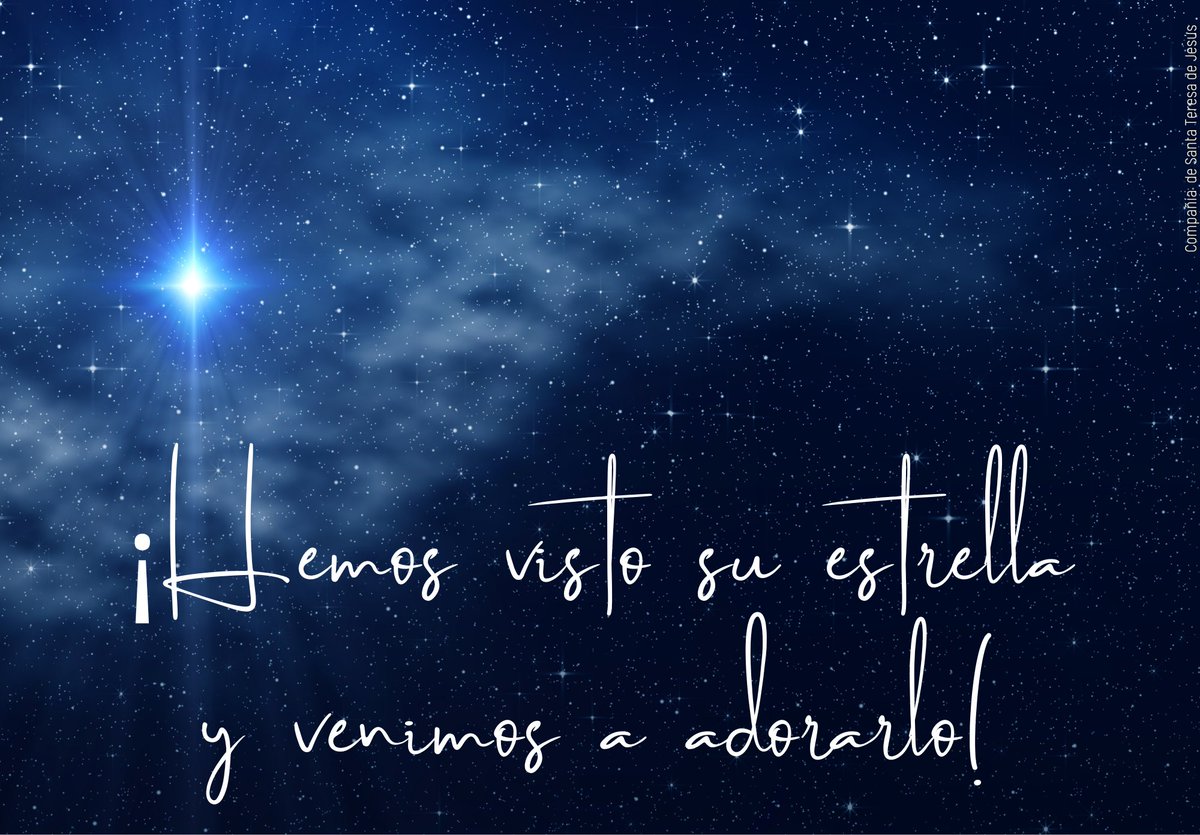 ¡Hemos visto su estrella
y venimos a adorarlo!
Compañia: de Santa Teresa de Jesús